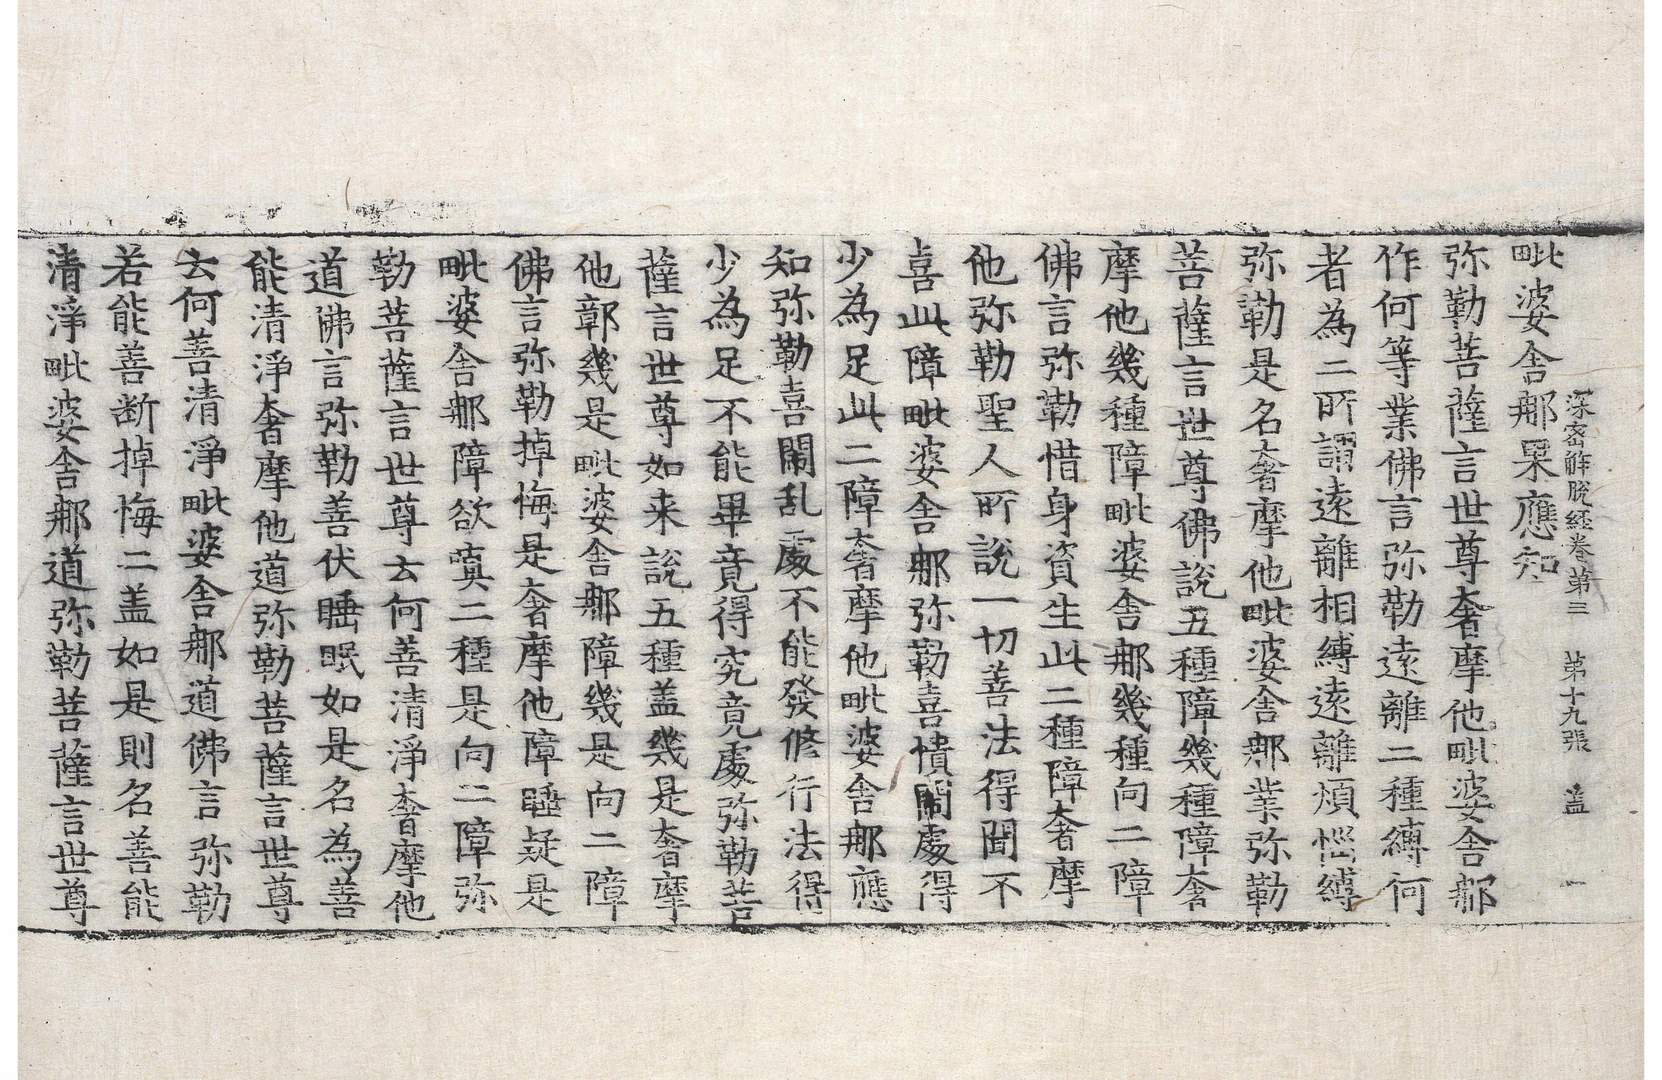 深密解脫經卷第三　第十九張　盖　一
毗婆舍那果應知
弥勒菩薩言世尊奢摩他毗婆舍那
作何等業佛言弥勒遠離二種縛何
者為二所謂遠離相縛遠離煩惱縛
弥勒是名奢摩他毗婆舍那業弥勒
菩薩言世尊佛說五種障幾種障奢
摩他幾種障毗婆舍那幾種向二障
佛言弥勒惜身資生此二種障奢摩
他弥勒聖人所說一切善法得聞不
喜此障毗婆舍那弥勒喜憒閙處得
少為足此二障奢摩他毗婆舍那應
知弥勒喜閙乱處不能發修行法得
少為足不能畢竟得究竟處弥勒菩
薩言世尊如来說五種盖幾是奢摩
他鄣幾是毗婆舍那障幾是向二障
佛言弥勒掉悔是奢摩他障睡疑是
毗婆舍那障欲嗔二種是向二障弥
勒菩薩言世尊云何善清淨奢摩他
道佛言弥勒善伏睡眠如是名為善
能清淨奢摩他道弥勒菩薩言世尊
云何善清淨毗婆舍那道佛言弥勒
若能善断掉悔二盖如是則名善能
清淨毗婆舍那道弥勒菩薩言世尊